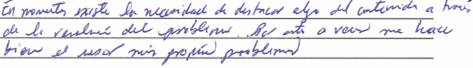 En momentos existe la necesidad de destacar algo del contenido a través
de la resolución del problema. Por esto a veces me hace
bien el usar mis propios problemas